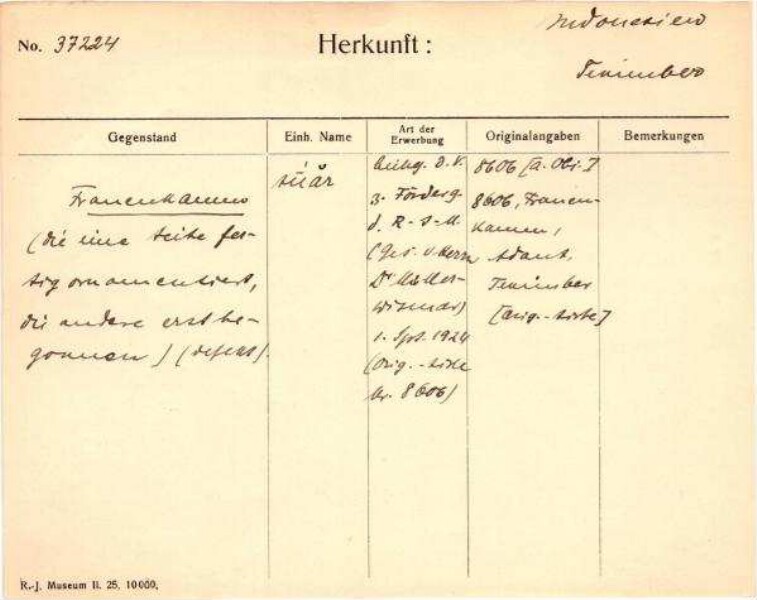 No. 37224
Herkunft:
Indonesien
Tenimber
Gegenstand
Einh. Name
Art der Erwerbung
Originalangaben
Bemerkungen
Frauenkamm
(die eine Seite fer-
tig ornamentiert,
die andere erst be-
gonnen) (defekt).
súár
d. V.
z. Förderg.
d. R-J-M.
(Ges. v. Herrn
Dr Müller-
Wismar)
1. Spt. 1924
(Orig.-Liste
Nr. 8606)
8606 [a. Obj.]
8606, Frauen-
kamm,
Adaut,
Tenimber
[Orig.-Liste]
R.-J. Museum II. 25. 10000.